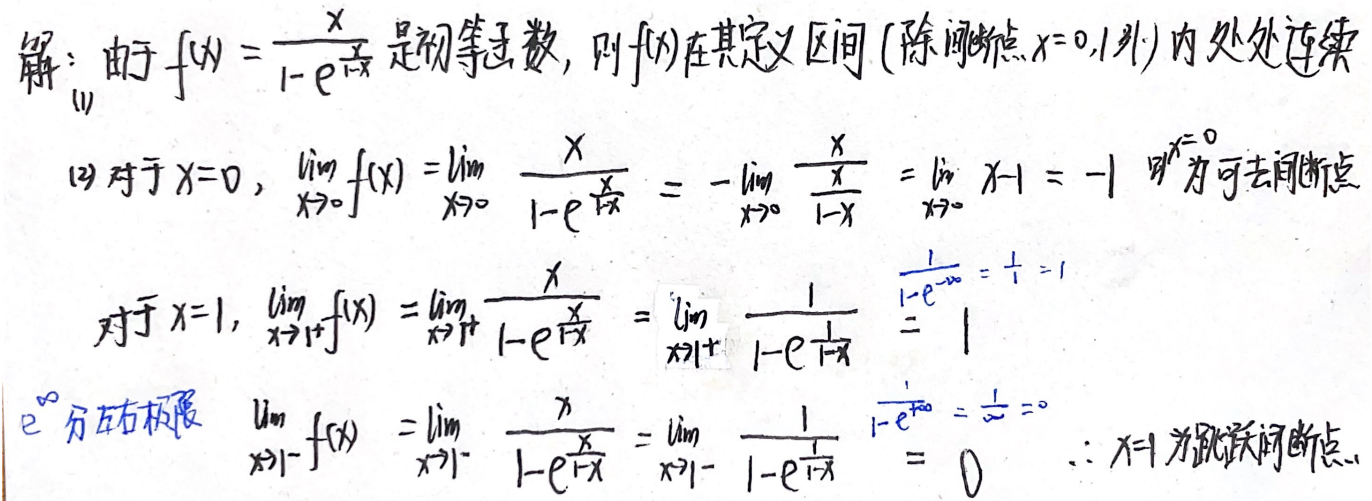 解：(1) 由于 f(x) = x/(1-e^(x/(1-x))) 是初等函数，则 f(x) 在其定义区间（除间断点 x=0,1外）内处处连续
(2) 对于 x=0，lim_{x→0} f(x) = lim_{x→0} x/(1-e^(x/(1-x))) = -lim_{x→0} x/(x/(1-x)) = lim_{x→0} x-1 = -1 即 x=0 为可去间断点
1/(1-e^(-∞)) = 1/1 = 1
对于 x=1，lim_{x→1+} f(x) = lim_{x→1+} x/(1-e^(x/(1-x))) = lim_{x→1+} 1/(1-e^(1/(1-x))) = 1
e^∞ 分左右极限
1/(1-e^(+∞)) = 1/∞ = 0
lim_{x→1-} f(x) = lim_{x→1-} x/(1-e^(x/(1-x))) = lim_{x→1-} 1/(1-e^(1/(1-x))) = 0 ∴ x=1 为跳跃间断点.